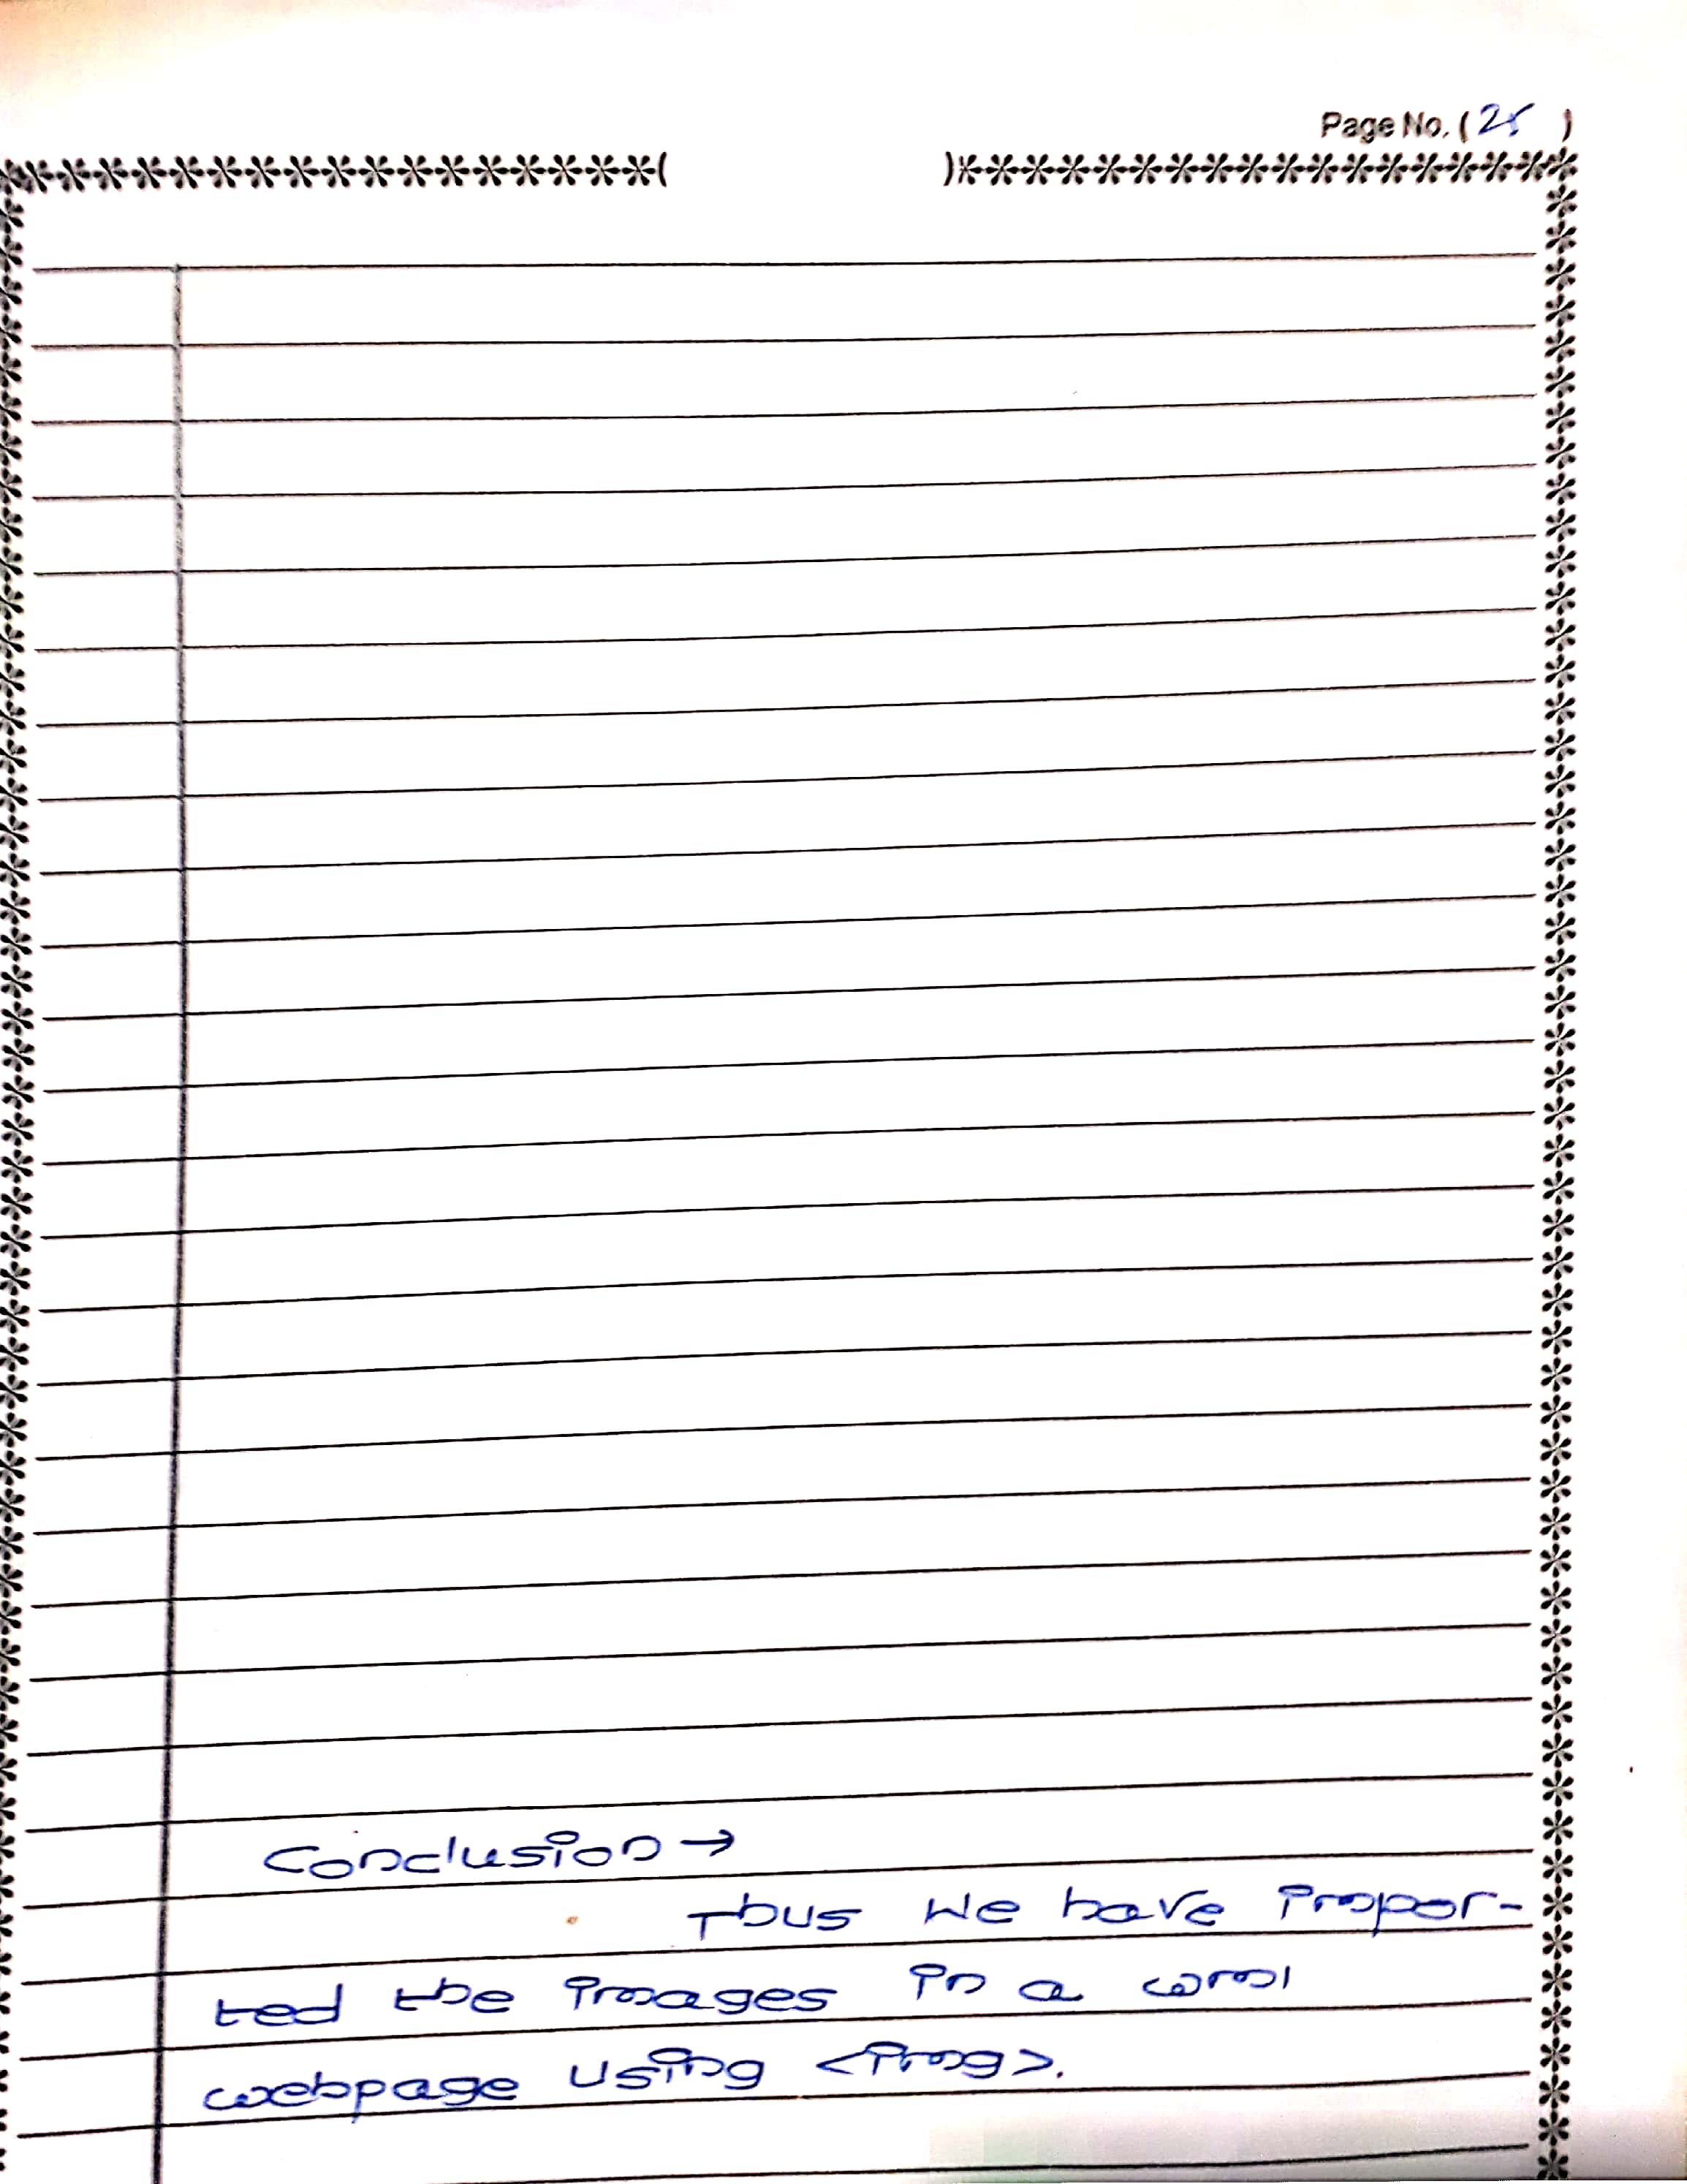 Page No. (25)
Conclusion →
Thus we have impor-
ted the images in a
webpage using <img>.